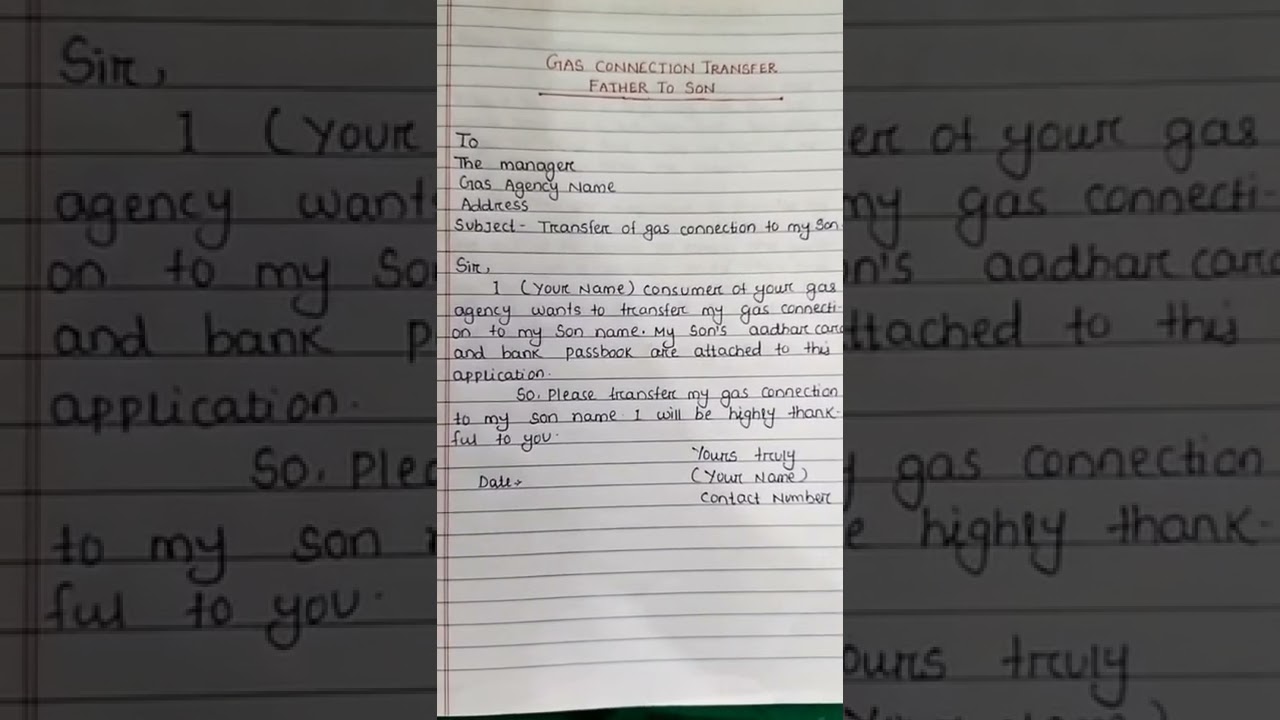 GAS CONNECTION TRANSFER
FATHER TO SON
To
The manager
Gas Agency Name
Address
Subject- Transfer of gas connection to my son
Sir,
I (Your Name) consumer of your gas
agency wants to transfer my gas connecti-
on to my son name. My son's aadhar card
and bank passbook are attached to this
application.
So, Please transfer my gas connection
to my son name. I will be highly thank-
ful to you.
Yours truly
Date→
(Your Name)
Contact Number